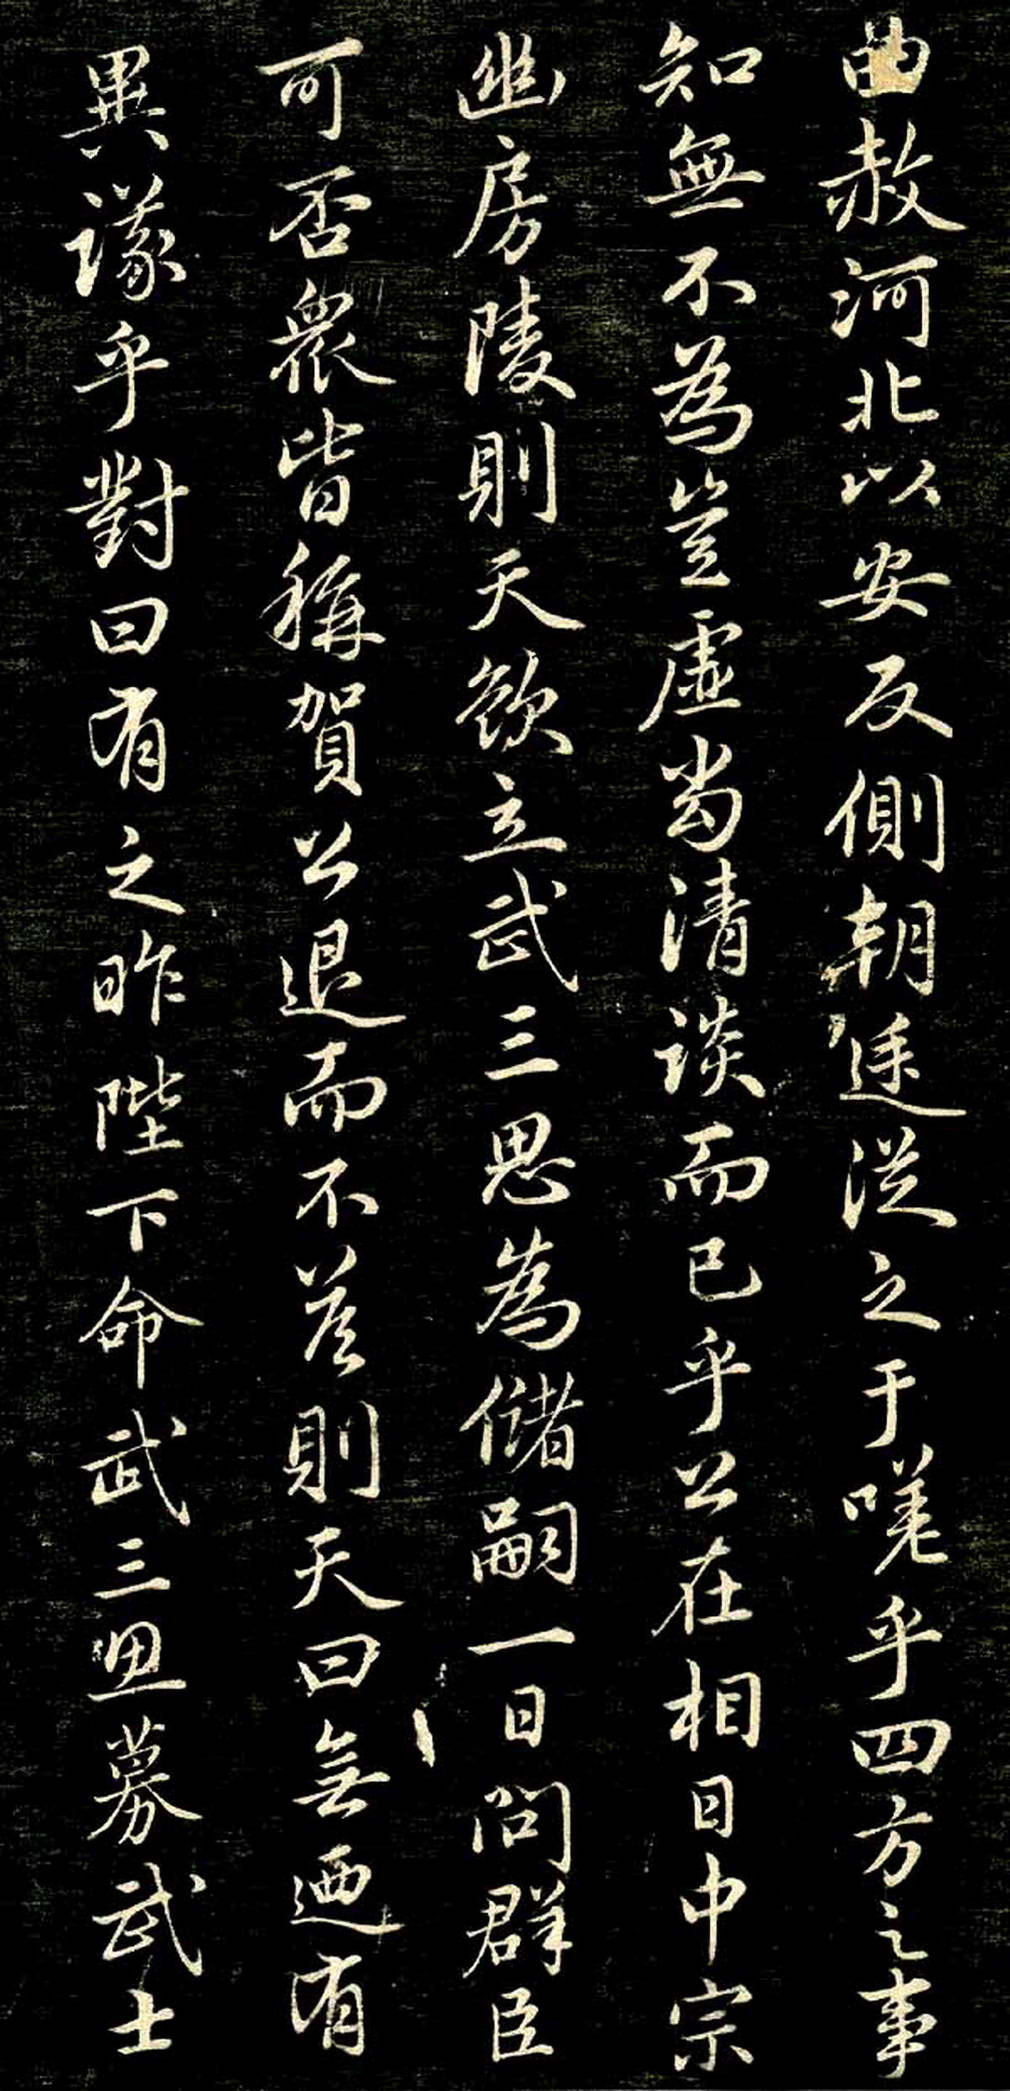 曲赦河北以安反側朝廷從之于嗟乎四方之事
知無不為豈虛尚清談而已乎公在相日中宗
幽房陵則天欲立武三思為儲嗣一日問群臣
可否眾皆稱賀公退而不答則天曰無迺有
異議乎對曰有之昨陛下命武三思募武士